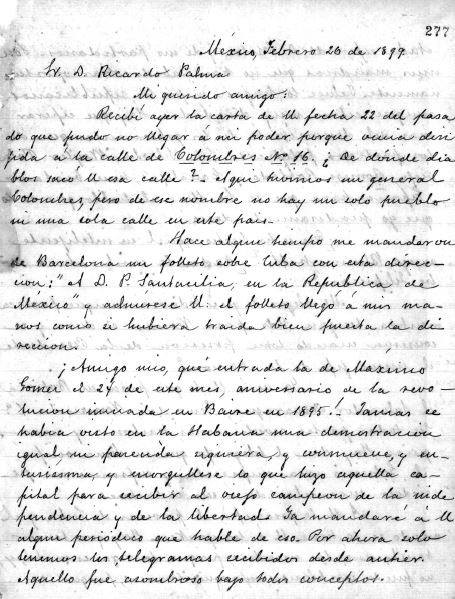 277
México, Febrero 26 de 1899.
Sr. D. Ricardo Palma
Mi querido amigo:
Recibí ayer la carta de U. fecha 22 del pasa
do que pudo no llegar á mi poder porque venia diri
jida á la calle de Colombres No 16. ¿ De dónde dia
blos sacó U esa calle ? - Aqui tuvimos un general
Colombrez pero de ese nombre no hay un solo pueblo
ni una sola calle en este pais.
Hace algun tiempo me mandaron
de Barcelona un folleto sobre Cuba con esta direc-
cion: " A D. P. Santacilia, en la Republica de
México" y admirese U: el folleto llegó á mis ma-
nos como si hubiera traido bien puesta la di
reccion.
¡ Amigo mio, qué entrada la de Máximo
Gomez el 24 de este mes, aniversario de la revo-
lucion iniciada en Baire en 1895 ! - Jamas se
habia visto en la Habana una demostracion
igual ni parecida siquiera, y conmueve, y en-
tusiasma, y enorgullese lo que hizo aquella ca-
pital para recibir al viejo campeon de la inde
pendencia y de la libertad. Ya mandaré á U
algun periódico que hable de eso. Por ahora solo
tenemos los telegramas recibidos desde antier.
Aquello fue asombroso bajo todos conceptos.